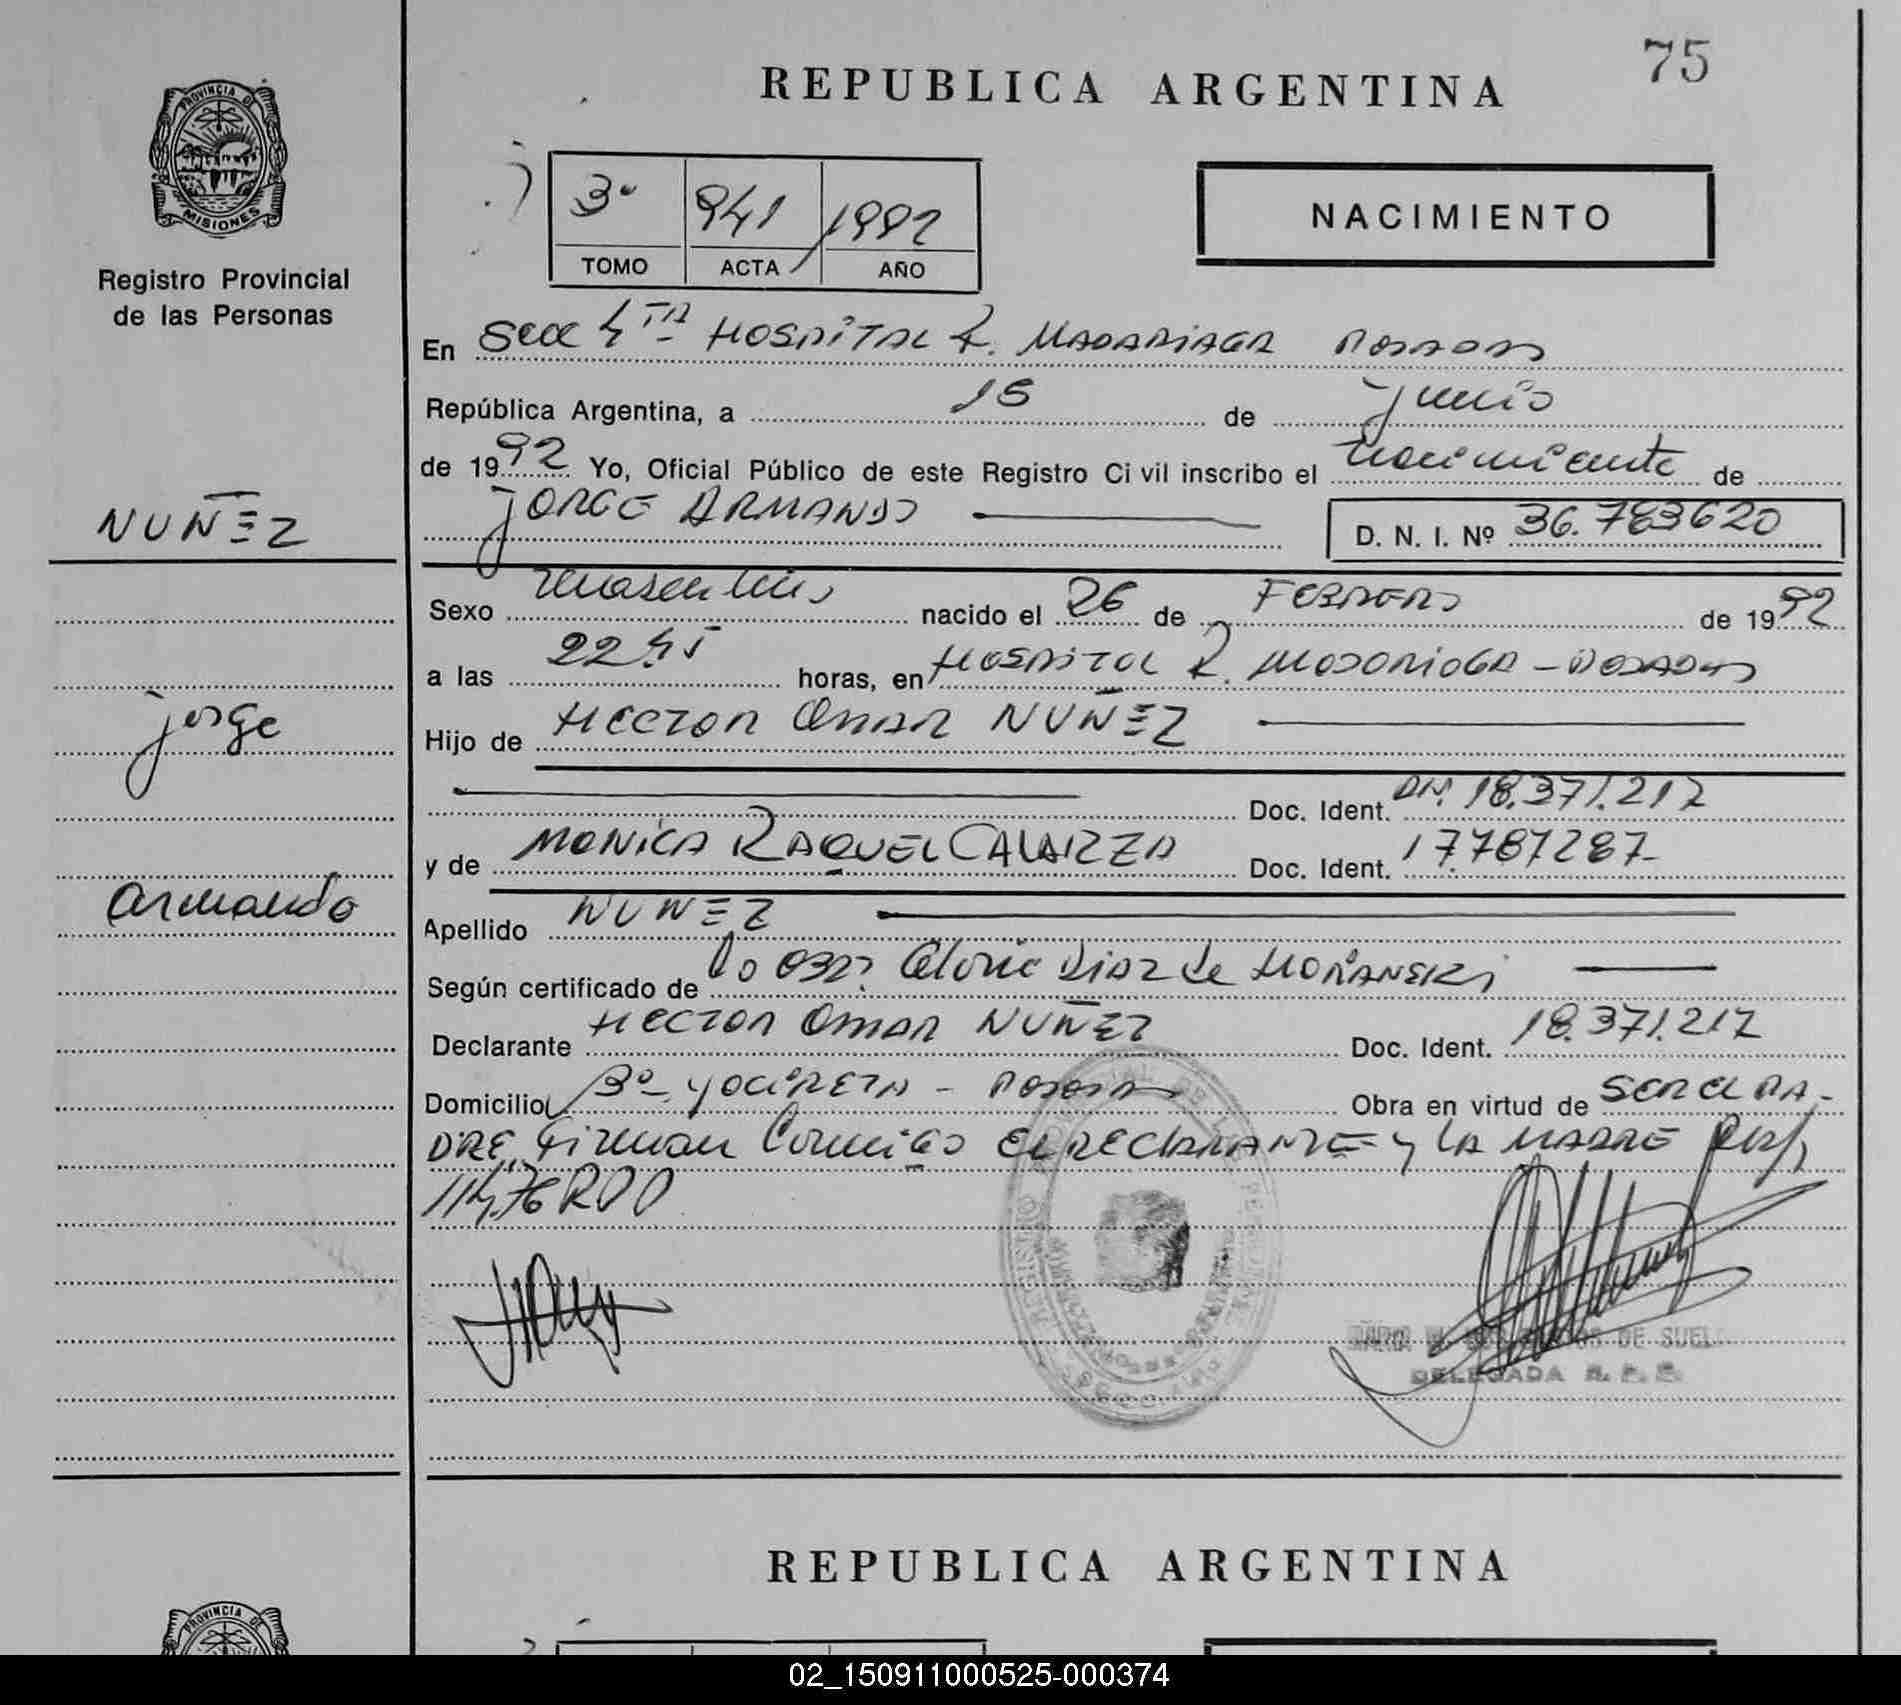 75
REPUBLICA ARGENTINA
PROVINCIA DE
MISIONES
Registro Provincial
de las Personas
3º 941 1992
TOMO ACTA AÑO
NACIMIENTO
En Secc 4TA HOSPITAL R. MADARIAGA POSADAS
República Argentina, a 15 de Junio
de 1992 Yo, Oficial Público de este Registro Civil inscribo el nacimiento de
JORGE ARMANDO
D. N. I. Nº 36.783620
NUÑEZ
Jorge
Armando
Sexo masculino nacido el 26 de FEBRERO de 1992
a las 22.45 horas, en HOSPITAL R. MADARIAGA - POSADAS
Hijo de HECTOR OMAR NUÑEZ
Doc. Ident. DNI. 18.371.217
y de MONICA RAQUEL GALARZA Doc. Ident. 17.787287
Apellido NUÑEZ
Según certificado de la OBST. Gloria DIAZ de
Declarante HECTOR OMAR NUÑEZ Doc. Ident. 18.371.217
Domicilio Bº YACIRETA - Posadas Obra en virtud de SER EL PA-
DRE, Firman Conmigo EL DECLARANTE y LA MADRE
DE SUEL
DELEGADA R. P. P.
REPUBLICA ARGENTINA
PROVINCIA DE
02_150911000525-000374